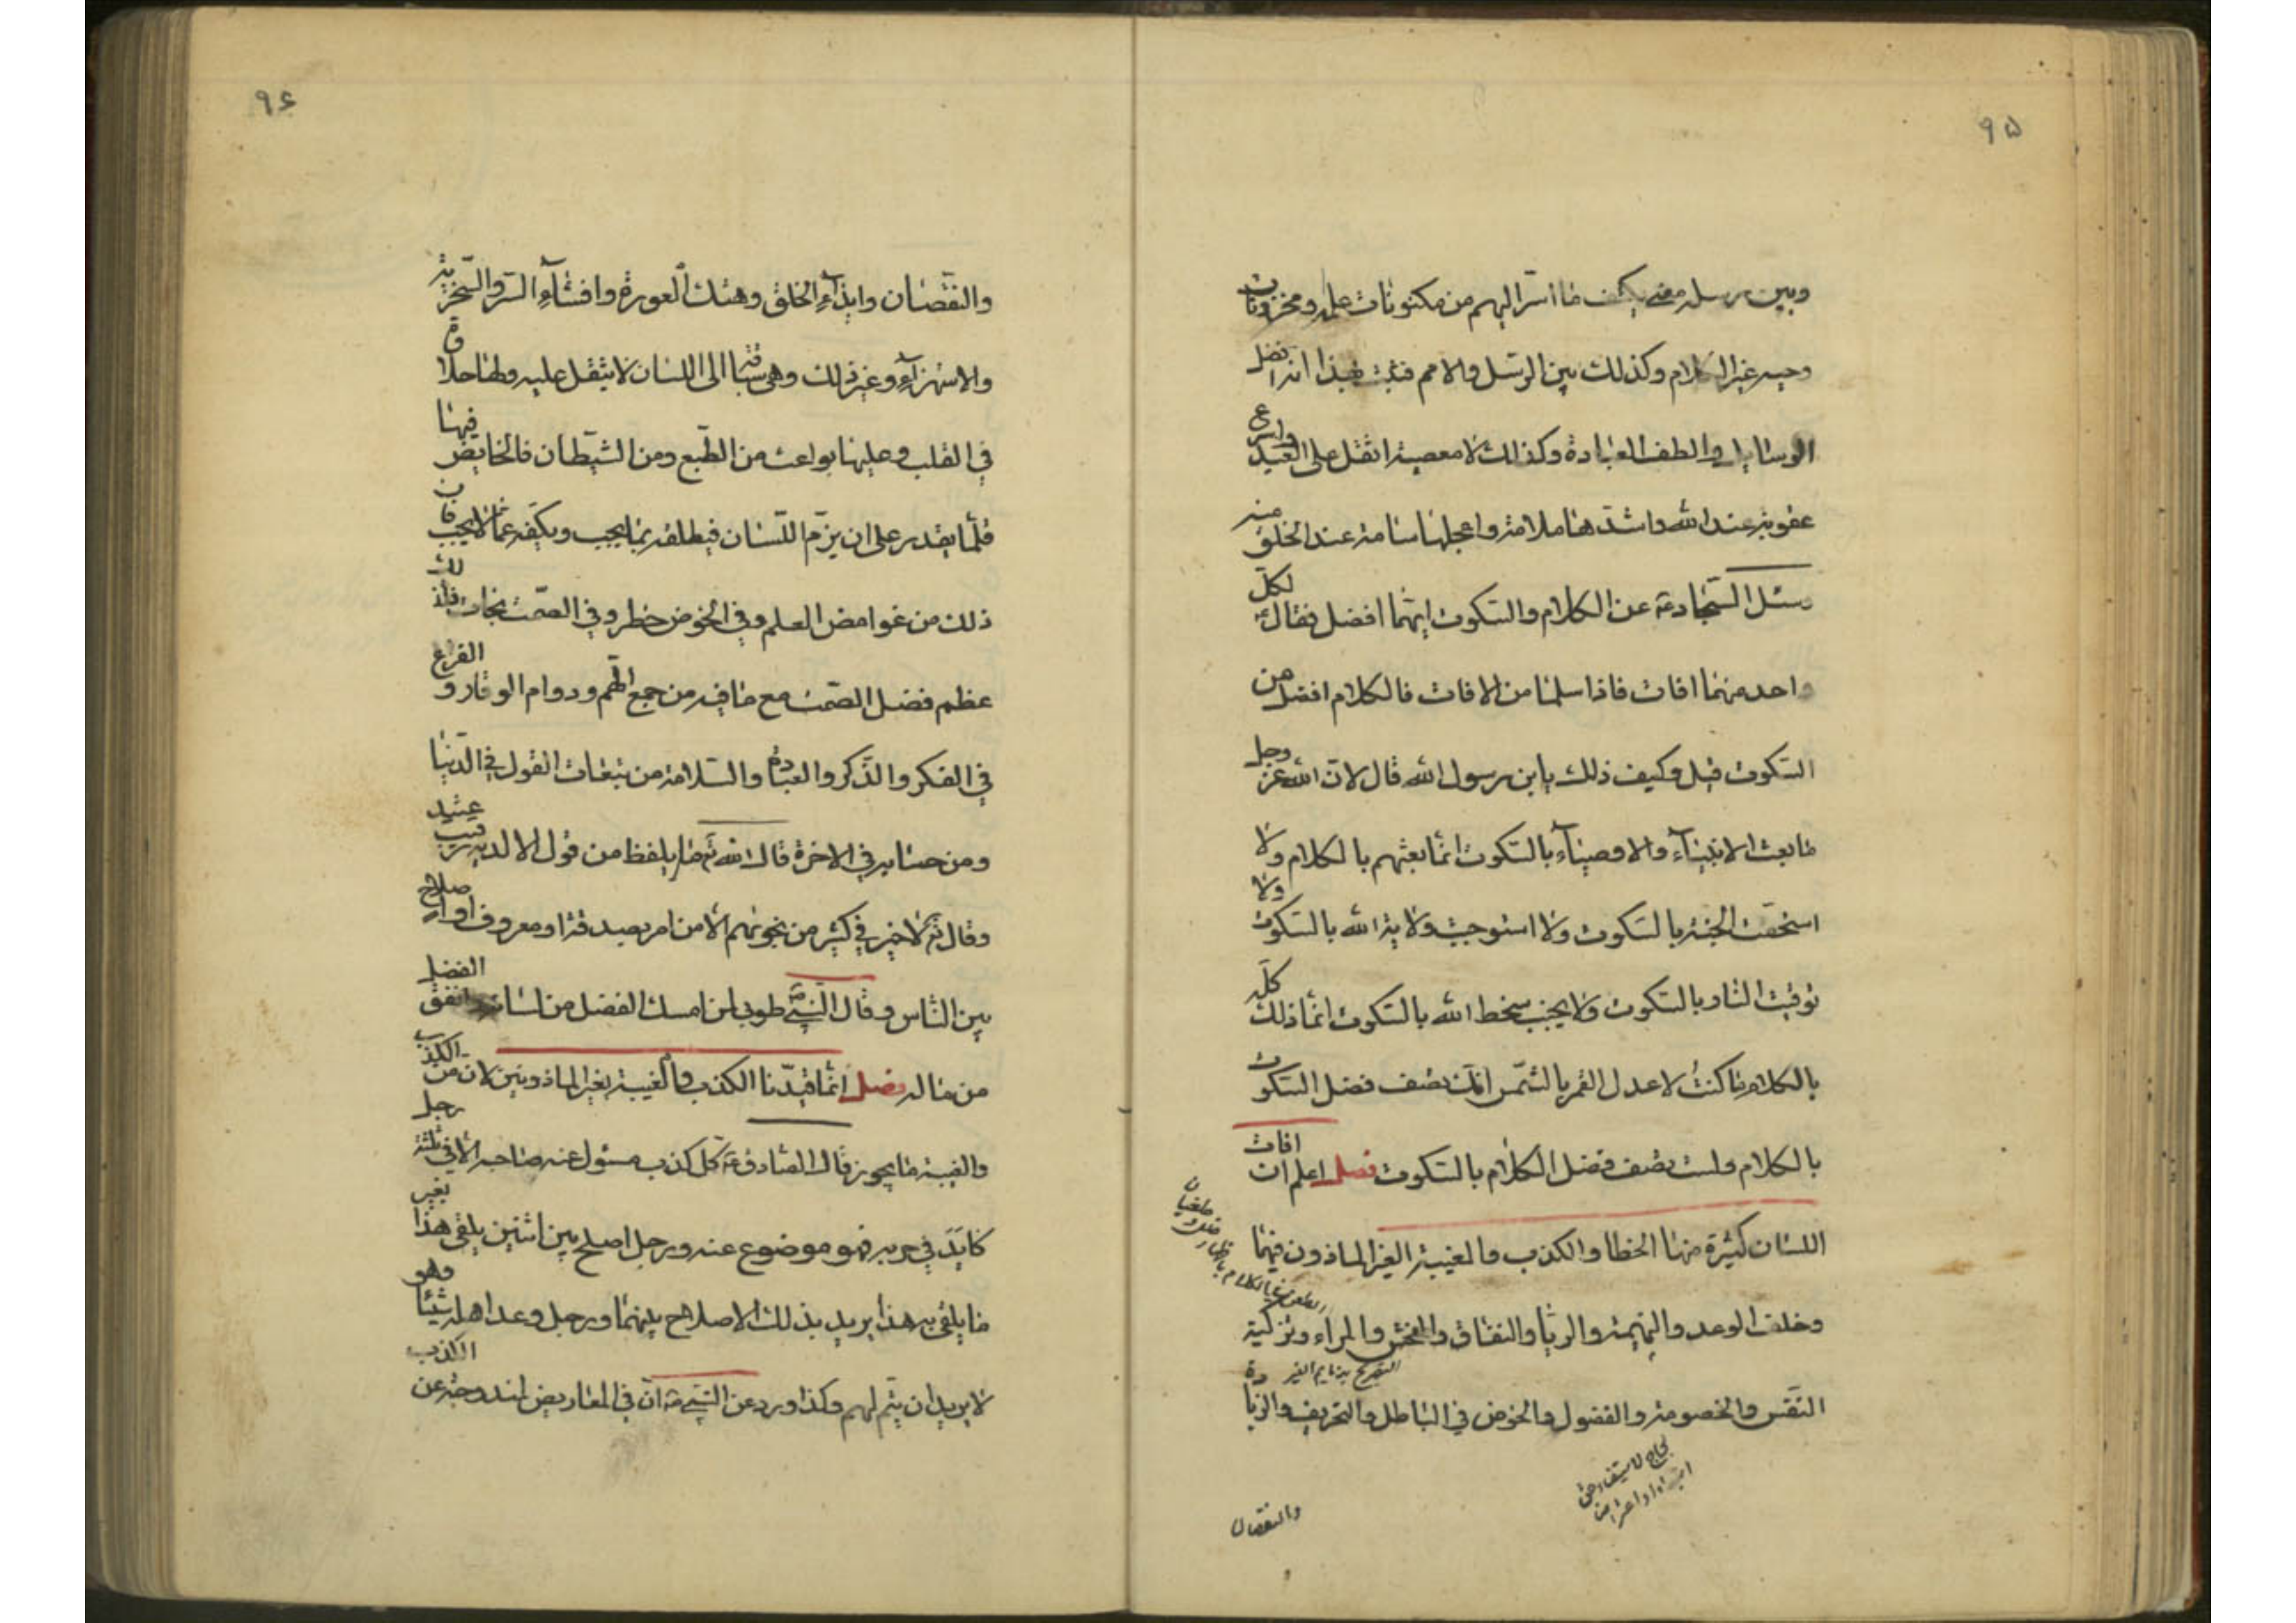 ٩٥
وبين رسله معنى يكشف ما اسرّ اليهم من مكنونات علمه ومخزونات
وحيه غير الكلام وكذلك بين الرسل والامم فثبت بهذا انه افضل
الوسايل والطف العبادة وكذلك لا معصية اثقل على العبد واسرع
عقوبة عند الله واشدّها ملامة واعجلها سامة عند الخلق منه
وسئل السّجاد عن الكلام والسّكوت ايّهما افضل فقال لكلّ
واحد منهما افات فاذا سلما من الافات فالكلام افضل من
السّكوت قيل وكيف ذلك يابن رسول الله قال لانّ الله عزّ وجل
ما بعث الانبيآء والاوصيآء بالسّكوت انّما بعثهم بالكلام ولا
استحقت الجنّة بالسّكوت ولا استوجبت ولاية الله بالسّكوت ولا
توقّيت النّار بالسّكوت ولا يجنب سخط الله بالسّكوت انّما ذلك كلّه
بالكلام ما كنتُ لاعدل القمر بالشّمس انّك تصف فضل السّكوت
بالكلام ولست تصف فضل الكلام بالسّكوت فصل اعلم انّ افات
اللسان كثيرة منها الخطا والكذب والغيبة الغير الماذون فيها
وخلف الوعد والنّميمة والريا والنفاق والفحش والمراء وتزكية
النّفس والخصومة والفضول والخوض في الباطل والتحريف والزيادة
والنقصان
٩٦
والنقصان وايذآء الخلق وهتك العورة وافشآء السّر والسّخرية
والاستهزآء وغير ذلك وهى سبّاقة الى اللسان لا يثقل عليه ولها حلاوة
في القلب وعليها بواعث من الطّبع ومن الشّيطان فالخايض فيها
قلّما يقدر على ان يزمّ اللّسان فيطلقه بما يجب ويكفّه عمّا لا يجب فان
ذلك من غوامض العلم وفي الخوض خطر وفي الصّمت نجات فلذلك
عظم فضل الصّمت مع ما فيه من جمع الهّم ودوام الوقار و الفراغ
في الفكر والذّكر والعبادة والسّلامة من تبعات القول في الدّنيا
ومن حسابه في الاخرة قال الله تع ما يلفظ من قول الا لديه رقيب عتيد
وقال تع لا خير في كثير من نجويهم الّا من امر بصدقة او معروف او اصلاح
بين النّاس وقال النّبي طوبى لمن امسك الفضل من لسانه وانفق الفضل
من ماله فصل انّما قيّدنا الكذب والغيبة بغير الماذونين لان من الكذب
والغيبة ما يجوز قال الصّادق ع كلّ كذب مسئول عنه صاحبه الّا في ثلثة رجل
كايَدَ في حربه فهو موضوع عنه ورجل اصلح بين اثنين يلقى هذا بغير
ما يلقى به هذا يريد بذلك الاصلاح بينهما ورجل وعد اهله شيئا وهو
لا يريد ان يتّم لهم وكذا ورد عن النّبي ص انّ في المعاريض لمندوحة عن الكذب